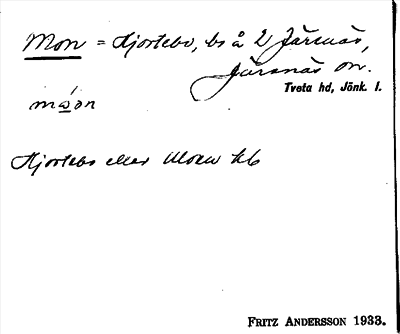 Mon = Hjortebo, bs å 2 Järsnäs,
Järsnäs sn.
Tveta hd, Jönk. l.
måon
Hjortebo eller Moen kb
FRITZ ANDERSSON 1933.